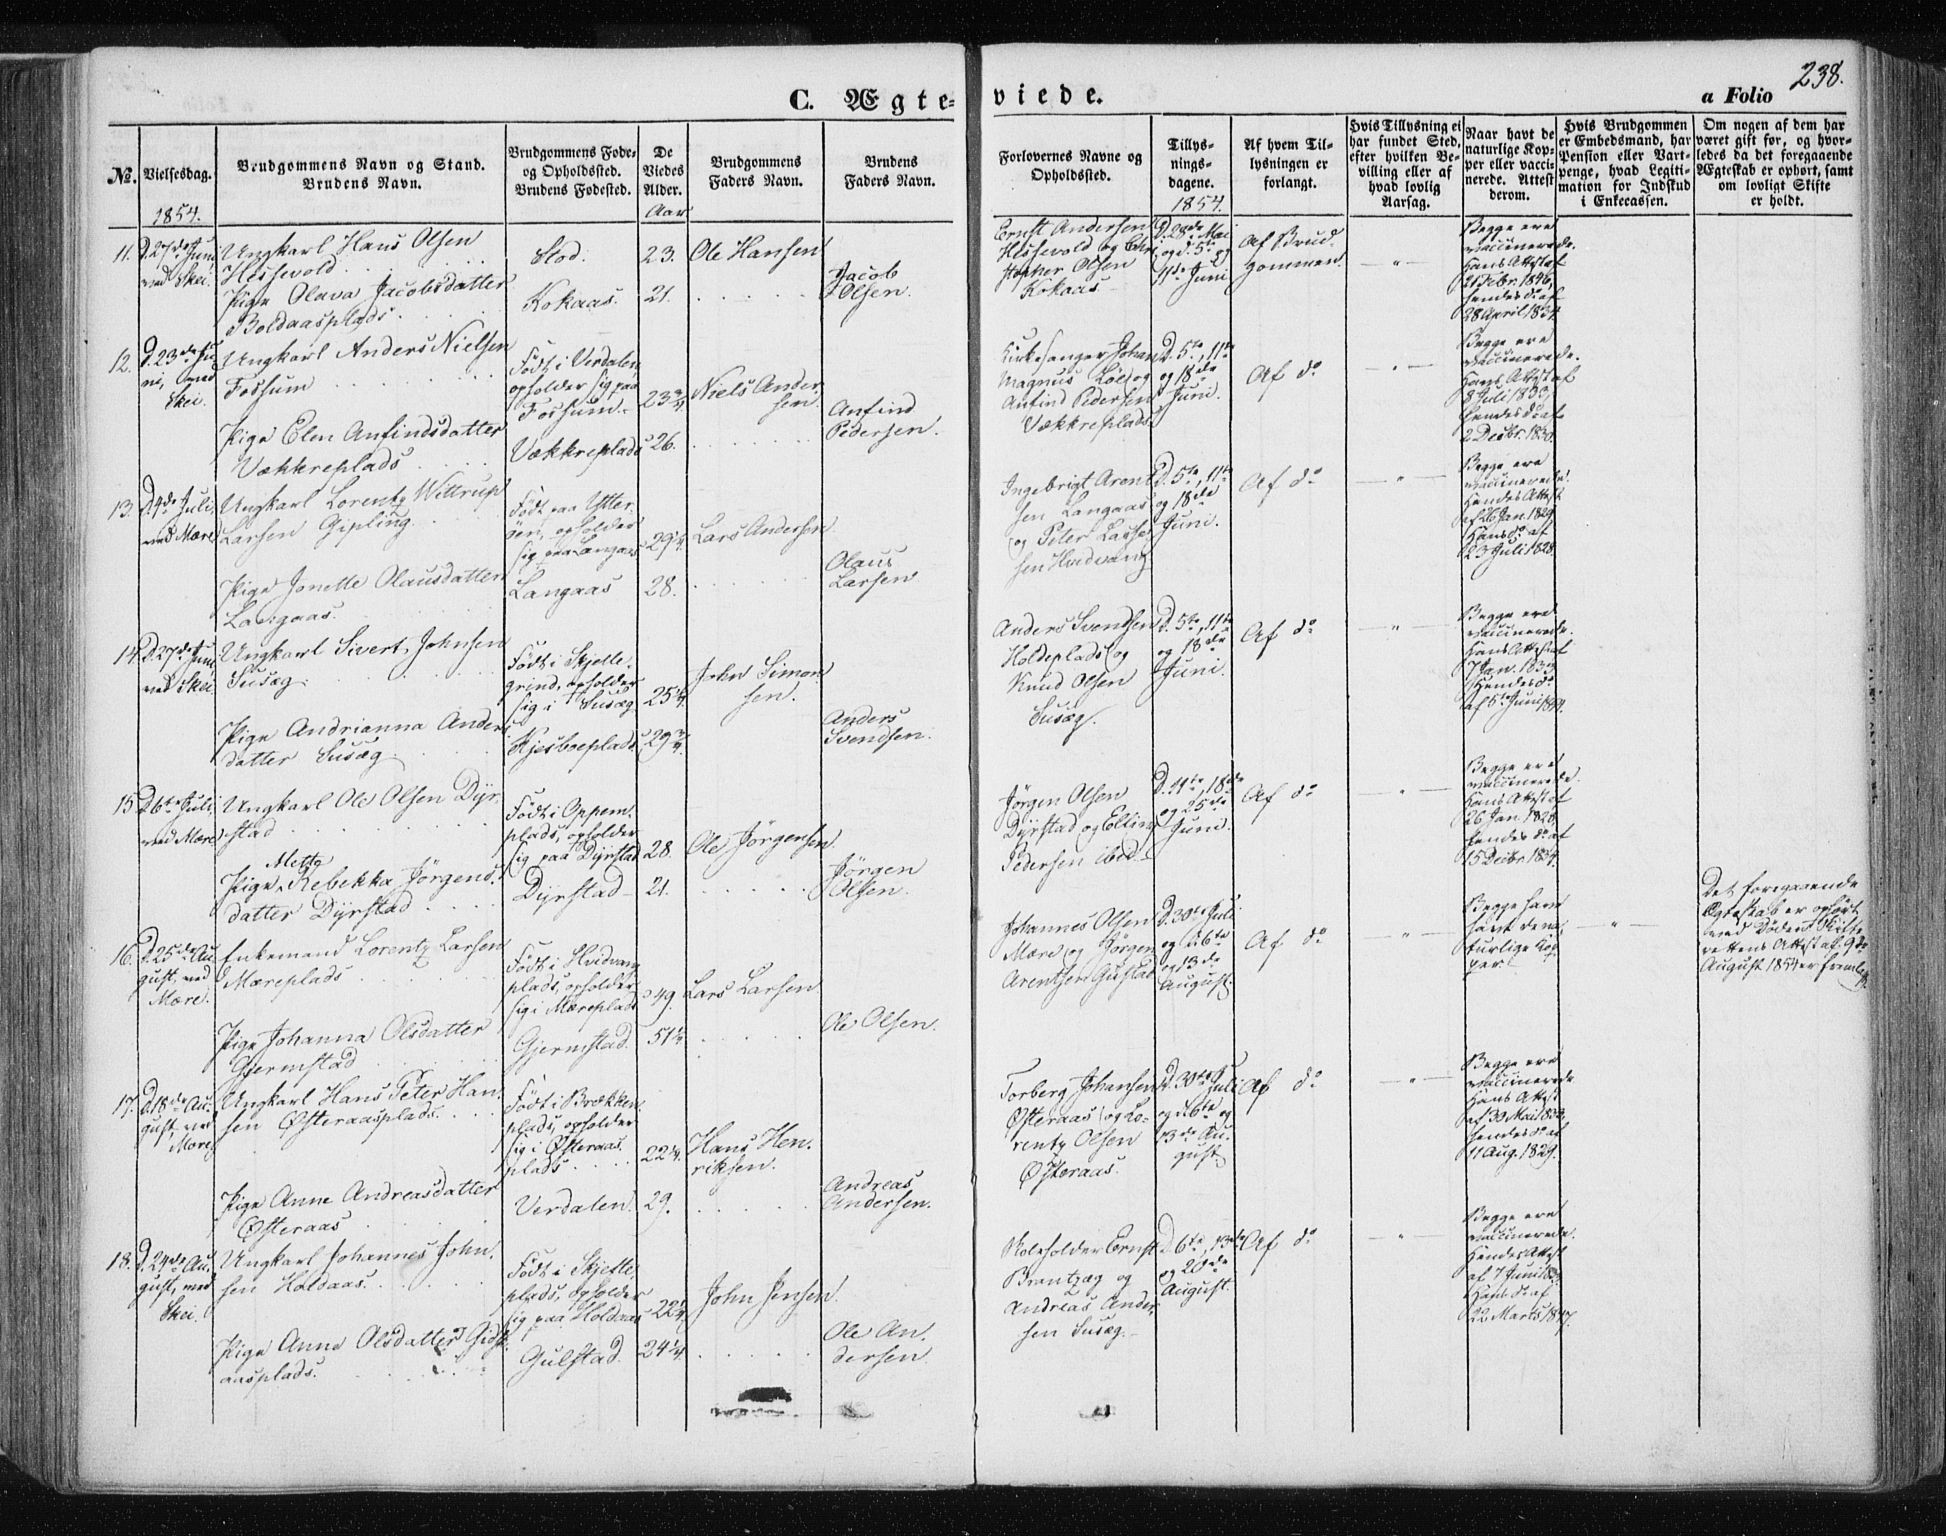 238.
C. Ægte= viede. a Folio
No.
Vielsesdag.
Brudgommens Navn og Stand.
Brudens Navn.
Brudgommens Føde-
og Opholdssted.
Brudens Fødested.
De
Viedes
Alder.
Brudgommens
Faders Navn.
Brudens
Faders Navn.
Forlovernes Navne og
Opholdssted.
Tillys-
nings-
dagene.
Af hvem Til-
lysningen er
forlangt.
Hvis Tillysning ei
har fundet Sted,
efter hvilken Be-
villing eller af
hvad lovlig
Aarsag.
Naar havt de
naturlige Kop-
per eller vacci-
nerede. Attest
derom.
Hvis Brudgommen
er Embedsmand, har
Pension eller Vart-
penge, hvad Legiti-
mation for Indskud
i Enkecassen.
Om nogen af dem har
været gift før, og hvor-
ledes da det foregaaende
Ægteskab er ophørt, samt
om lovligt Skifte
er holdt.
1854.
Aar
1854.
11.
D. 27de Juni
ved Skei.
Ungkarl Hans Olsen
Hessevold
Pige Olava Jacobsdatter
Boldaasplads
Stod.
Kokaas.
23.
21.
Ole Hansen
Jacob
Olsen.
Ernst Andersen
Hessevold og Chri
stopher Olsen
Kokaas
D. 28de Mai
og d. 5te og
11te Juni
Af Brud-
gommen.
Begge ere
vaccinerede.
Hans Attest af
21 Febr. 1846,
hendes do af
28 April 1834.
12.
D. 23de Ju-
ni, ved
Skei.
Ungkarl Anders Nielsen
Fossum
Pige Elen Anfindsdatter
Vækkreplads
Født i Verdalen
opholder sig paa
Fossum
Vækkreplads
23 3/4
26.
Niels Ander
sen.
Anfind
Pedersen.
Kirkesanger Johan
Magnus Løe og
Anfind Pedersen
Vækkreplads
D. 5te, 11te
og 18de
Juni.
Af do
Begge ere
vaccinerede.
Hans Attest af
8 Juli 1833,
hendes do af
2 Decbr. 1830.
13.
D. 4de Juli,
ved Mære
Ungkarl Lorentz Wittrup
Larsen Gipling
Pige Jonette Olausdatter
Langaas
Født paa Ytter-
øen, opholder
sig paa Langaas
Langaas
29 1/4
28.
Lars Andersen
Olaus
Larsen
Ingebrigt Arent
sen Langaas
og Peter Lasse
sen Hvidvang
D. 5te, 11te
og 18de
Juni.
Af do
Begge ere
vaccinerede.
Hendes Attest
af 26 Jan. 1829
Hans do af
23 Juli 1828.
14.
D. 27de Juni
ved Skei
Ungkarl Sivert Johnsen
Susæg
Pige Andrianna Anders
datter Susæg
Født i Skjelle-
grind, opholder
sig i Susæg
Kjesboeplads
25 1/4
29 3/4
John Simon
sen.
Anders
Svendsen.
Anders Svendsen
Holdeplads og
Knud Olsen
Susæg.
D. 5te, 11te
og 18de
Juni.
Af do
Begge ere
vaccinerede.
Hans Attest af
7 Jan. 1833
Hendes do
15
D. 6te Juli
ved Mære
Ungkarl Ole Olsen Dyr-
stad
Mette
Pige Rebekka Jørgens-
datter Dyrstad
Født i Oppem-
plads, opholder
sig paa Dyrstad
Dyrstad
28.
21.
Ole Jørgensen
Jørgen
Olsen.
Jørgen Olsen
Dyrstad og Elling
Pedersen ibid.
D. 11te, 18de
og 25de
Juni.
Af do
Begge ere
vaccinerede.
Hans Attest af
26 Jan. 1828
hendes do af
16.
D. 25de Au
gust, ved
Mære.
Enkemand Lorentz Larsen
Mæreplads
Pige Johanna Olsdatter
Gjermstad
Født i Hvidvang
plads, opholder
sig i Mæreplads
Gjermstad.
49.
51 1/2
Lars Larsen
Ole Olsen.
Johannes Olsen
Mære og Jørgen
Arentsen Gustad
D. 30te Juli
og d. 6te
og 13de
August.
Af do
Begge have
havt de na
turlige Kop
per.
Det foregaaende
Ægteskab er ophørt
ved Døden. Skifte
rettens Attest af 9de
August 1854 er fremlagt.
17.
D. 18de Au-
gust, ved
Mære
Ungkarl Hans Peter Han-
sen Østeraasplads.
Pige Anne Andreasdatter
Østeraas
Født i Brækken-
plads, opholder
sig i Østeraas
plads
Verdalen.
22 1/4.
29.
Hans Hen-
riksen.
Andreas
Andersen.
Torberg Johansen
Østeraas og Lo-
rentz Olsen
Østeraas.
D. 30te Juli
og d. 6te og
13de Au-
gust.
Af do
Begge ere
vaccinerede
Hans Attest
hendes do af
11 Aug. 1829.
18.
D. 24de Au-
gust, ved
Skei.
Ungkarl Johannes John-
sen Holdaas.
Pige Anne Olsdatter
aasplads.
Født i Skjelle
plads, opholder
sig paa Holdaas
Gulstad.
22 1/4
24 1/4.
John Jensen.
Ole An-
dersen
Skoleholder Ernst
Brantzæg og
Andreas Ander-
sen Susæg.
D. 6te, 13de
og 20de
August.
Af do
Begge ere
vaccinerede.
Hendes Attest
Hans do af
22 Marts 1847.